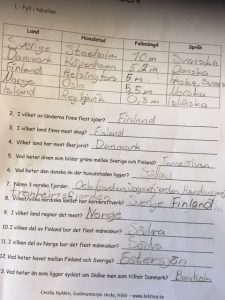 1. Fyll i tabellen.
Land Huvudstad Folkmängd Språk
Sverige Stockholm 10 m Svenska
Danmark Köpenhamn 5,2 m Danska
Finland Helsingfors 5 m
Norge Oslo 5 m Norska
Island Reykjavik 0,3 m Isländska
2. I vilket av länderna finns flest sjöar? Finland
3. I vilket land finns mest skog? Finland
4. Vilket land har mest åkerjord? Danmark
5. Vad heter älven som bildar gräns mellan Sverige och Finland?
6. Vad heter den danska ö där huvudstaden ligger? Själland
7. Nämn 3 norska fjordar. Oslofjorden, Sognefjorden, Hardanger
Trondheimsfjorden
8. Vilka nordiska länder har kärnkraftverk? Sverige, Finland
9. I vilket land regnar det mest? Norge
10. I vilken del av Finland bor det flest människor? Södra
11. I vilken del av Norge bor det flest människor? Södra
12. Vad heter havet mellan Finland och Sverige? Östersjön
13. Vad heter ön som ligger sydöst om Skåne men som tillhör Danmark? Bornholm
Cecilia Nyhlén, Gudmuntorps skola, Höör - www.lektion.se